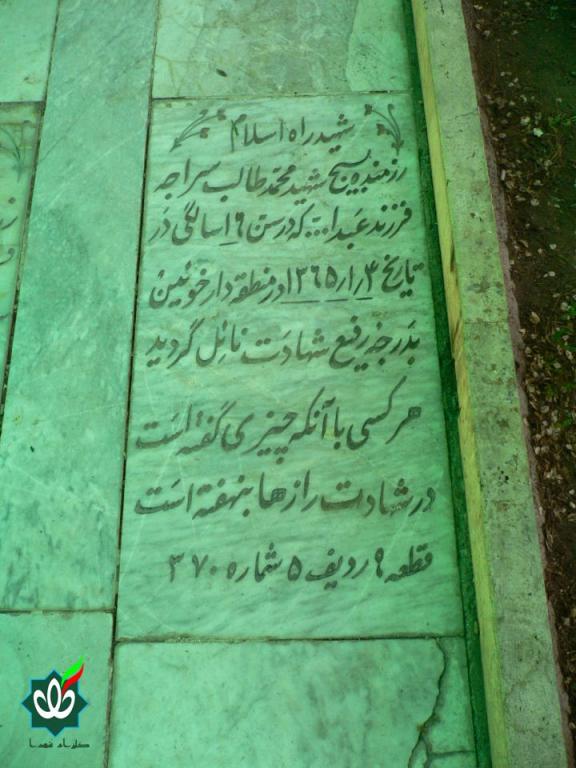 شهید راه اسلام
رزمنده بسیج شهید محمد طالب سراجه
فرزند عبدا... که در سن ۱۶ سالگی در
تاریخ ۱۳۶۵/۱/۳ در منطقه دارخوئین
بدرجه رفیع شهادت نائل گردید
هر کسی با آنکه چیزی گفته است
در شهادت رازها بنهفته است
قطعه ۹ ردیف ۵ شماره ۳۷۰
گلزار شهدا